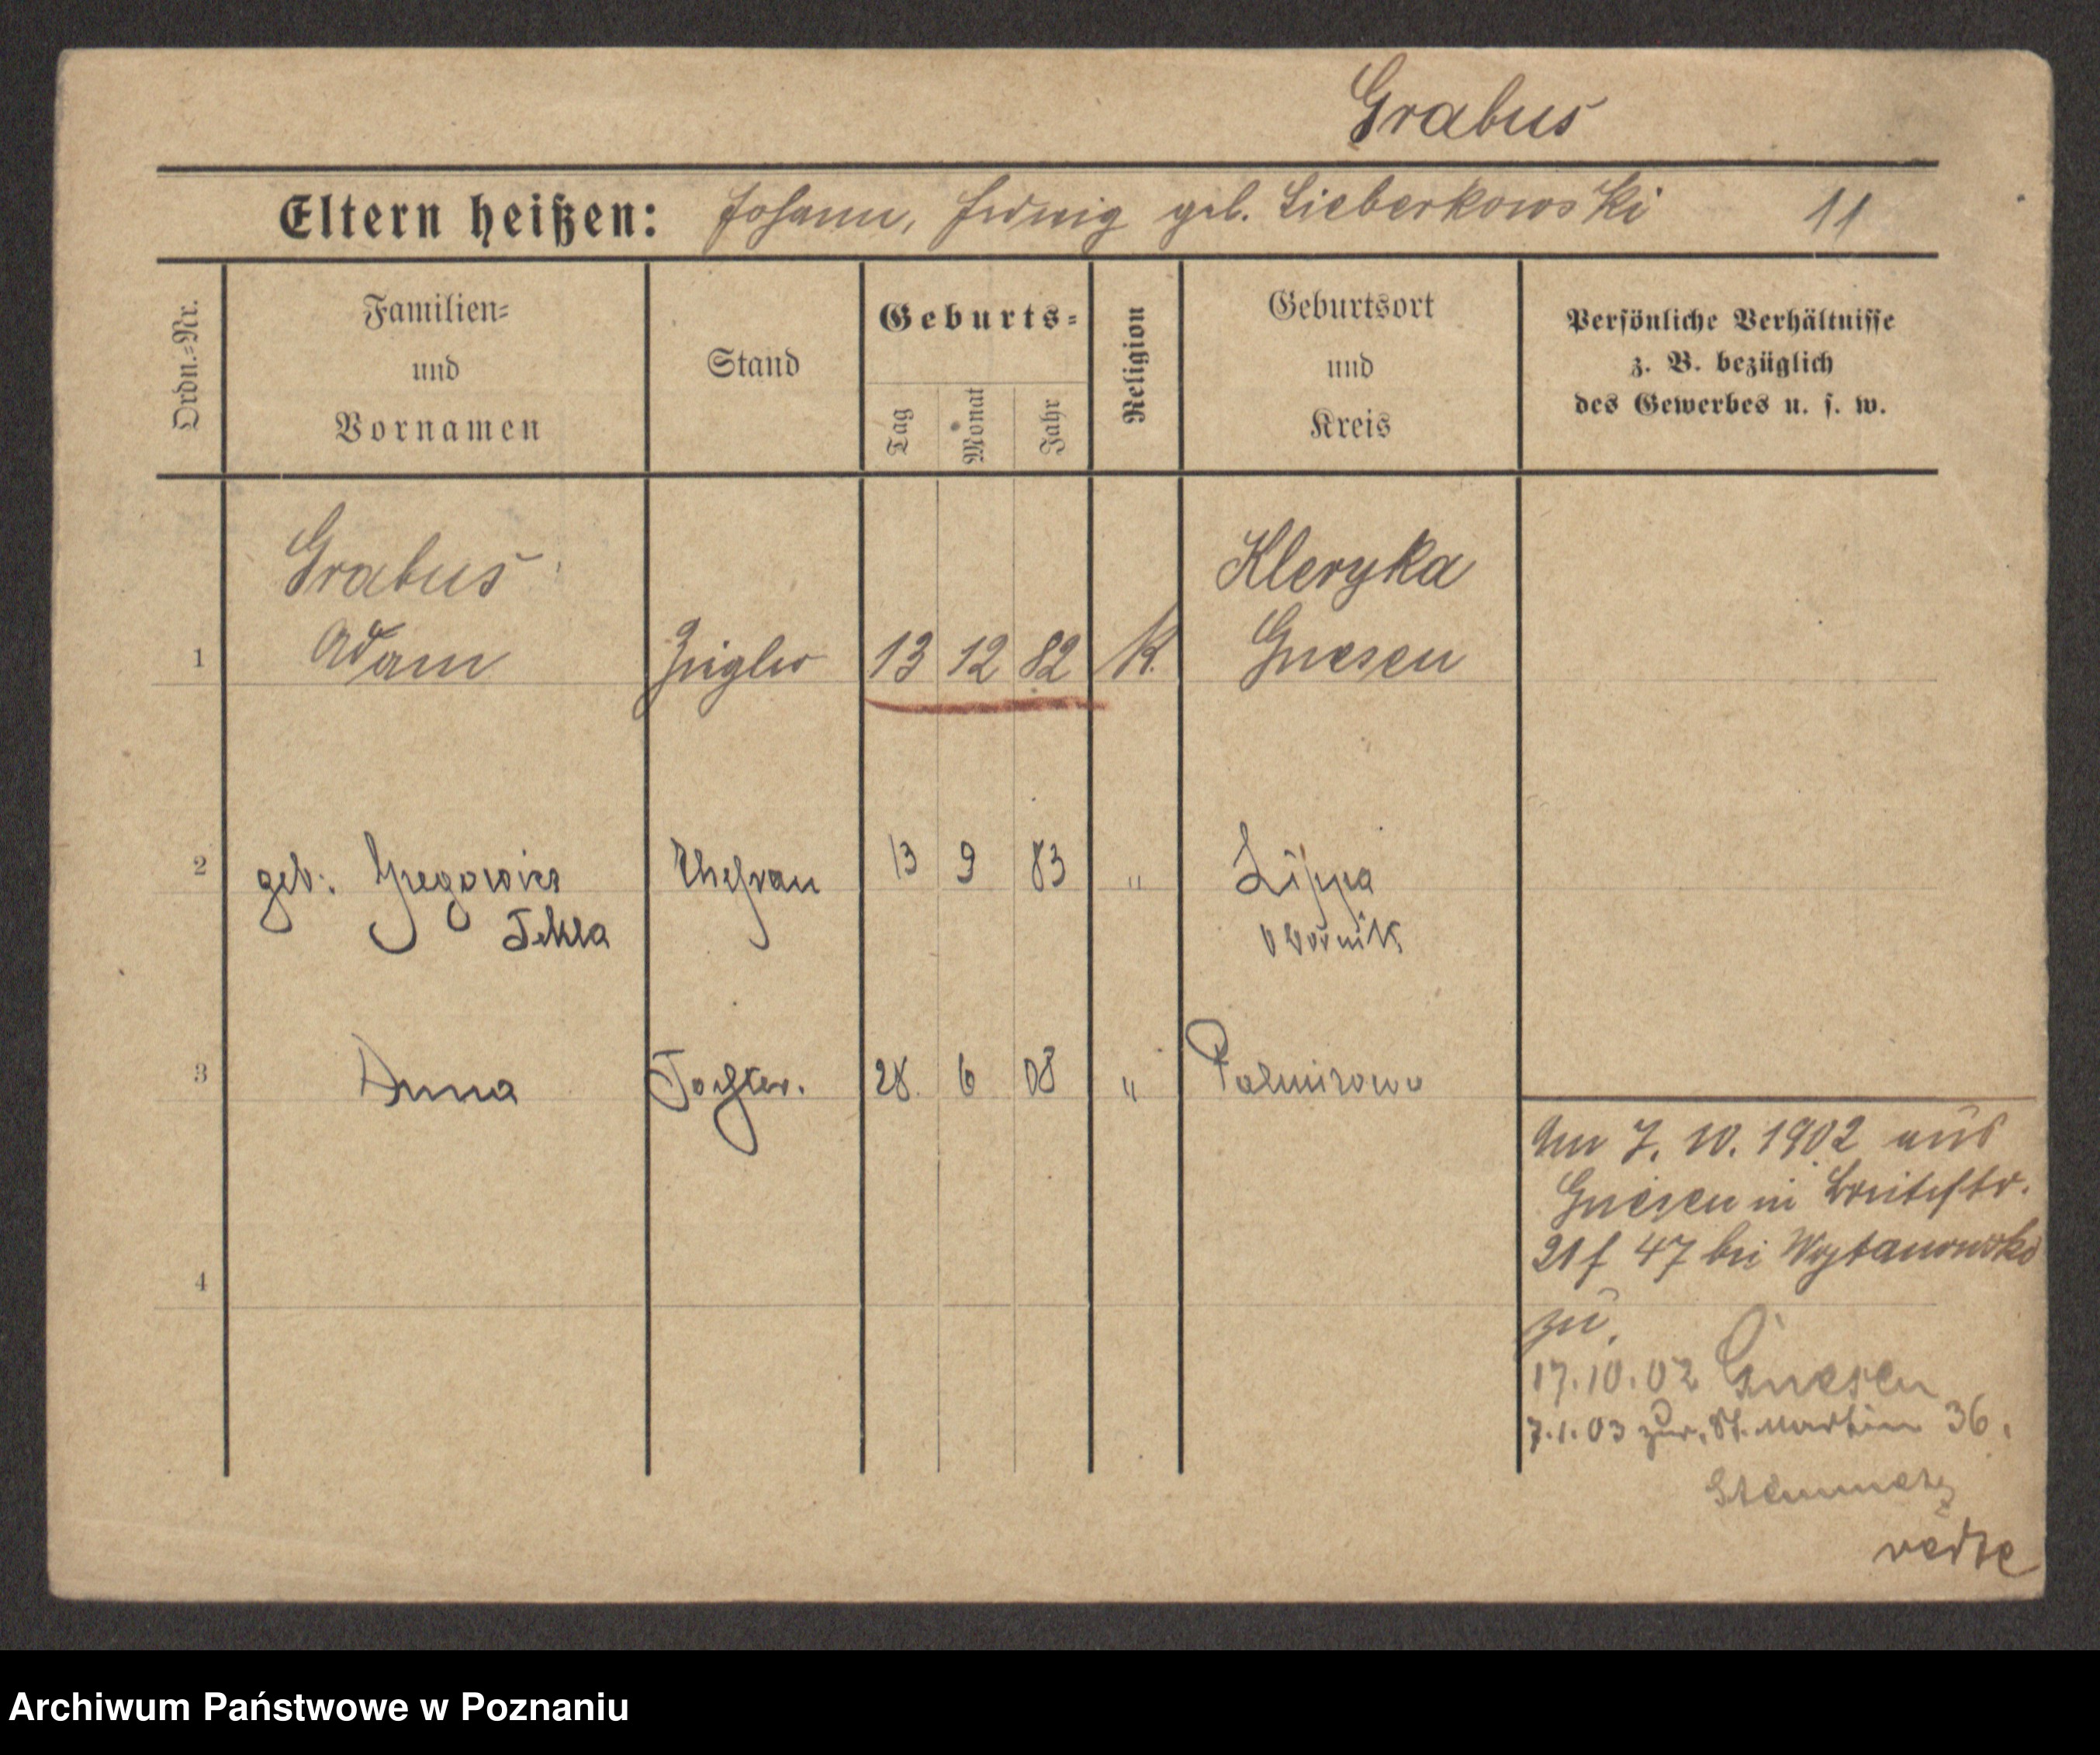 Grabus
Eltern heißen: Johann, Hedwig geb. Lieberkowski 11
Ordn.=Nr.
Familien=
und
Vornamen
Stand
Geburts=
Tag
Monat
Jahr
Religion
Geburtsort
und
Kreis
Persönliche Verhältnisse
z. B. bezüglich
des Gewerbes u. s. w.
Grabus Kleryka
1 Adam Ziegler 13 12 82 K. Gnesen
2 geb. Gregowicz Ehefrau 13 9 83 " Lippa
Tekla Obornik
3 Anna Tochter. 28 6 08 "
Am 7. 10. 1902 aus
Gnesen in Breitestr.
21 f 47 bei
4
zu.
17.10.02 Gnesen
7.1.03 zur. St. Martin 36.
Archiwum Państwowe w Poznaniu